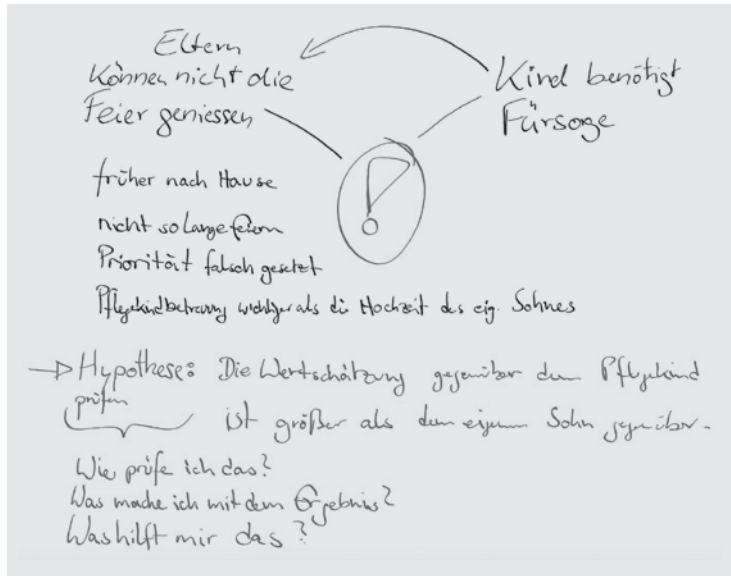 Eltern
können nicht die
Feier geniessen
Kind benötigt
Fürsorge
früher nach Hause
nicht so lange feiern
Priorität falsch gesetzt
Pflegekindbetreuung wichtiger als die Hochzeit des eig. Sohnes
Hypothese: Die Wertschätzung gegenüber dem Pflegekind
prüfen
ist größer als dem eigenen Sohn gegenüber.
Wie prüfe ich das?
Was mache ich mit dem Ergebnis?
Was hilft mir das?